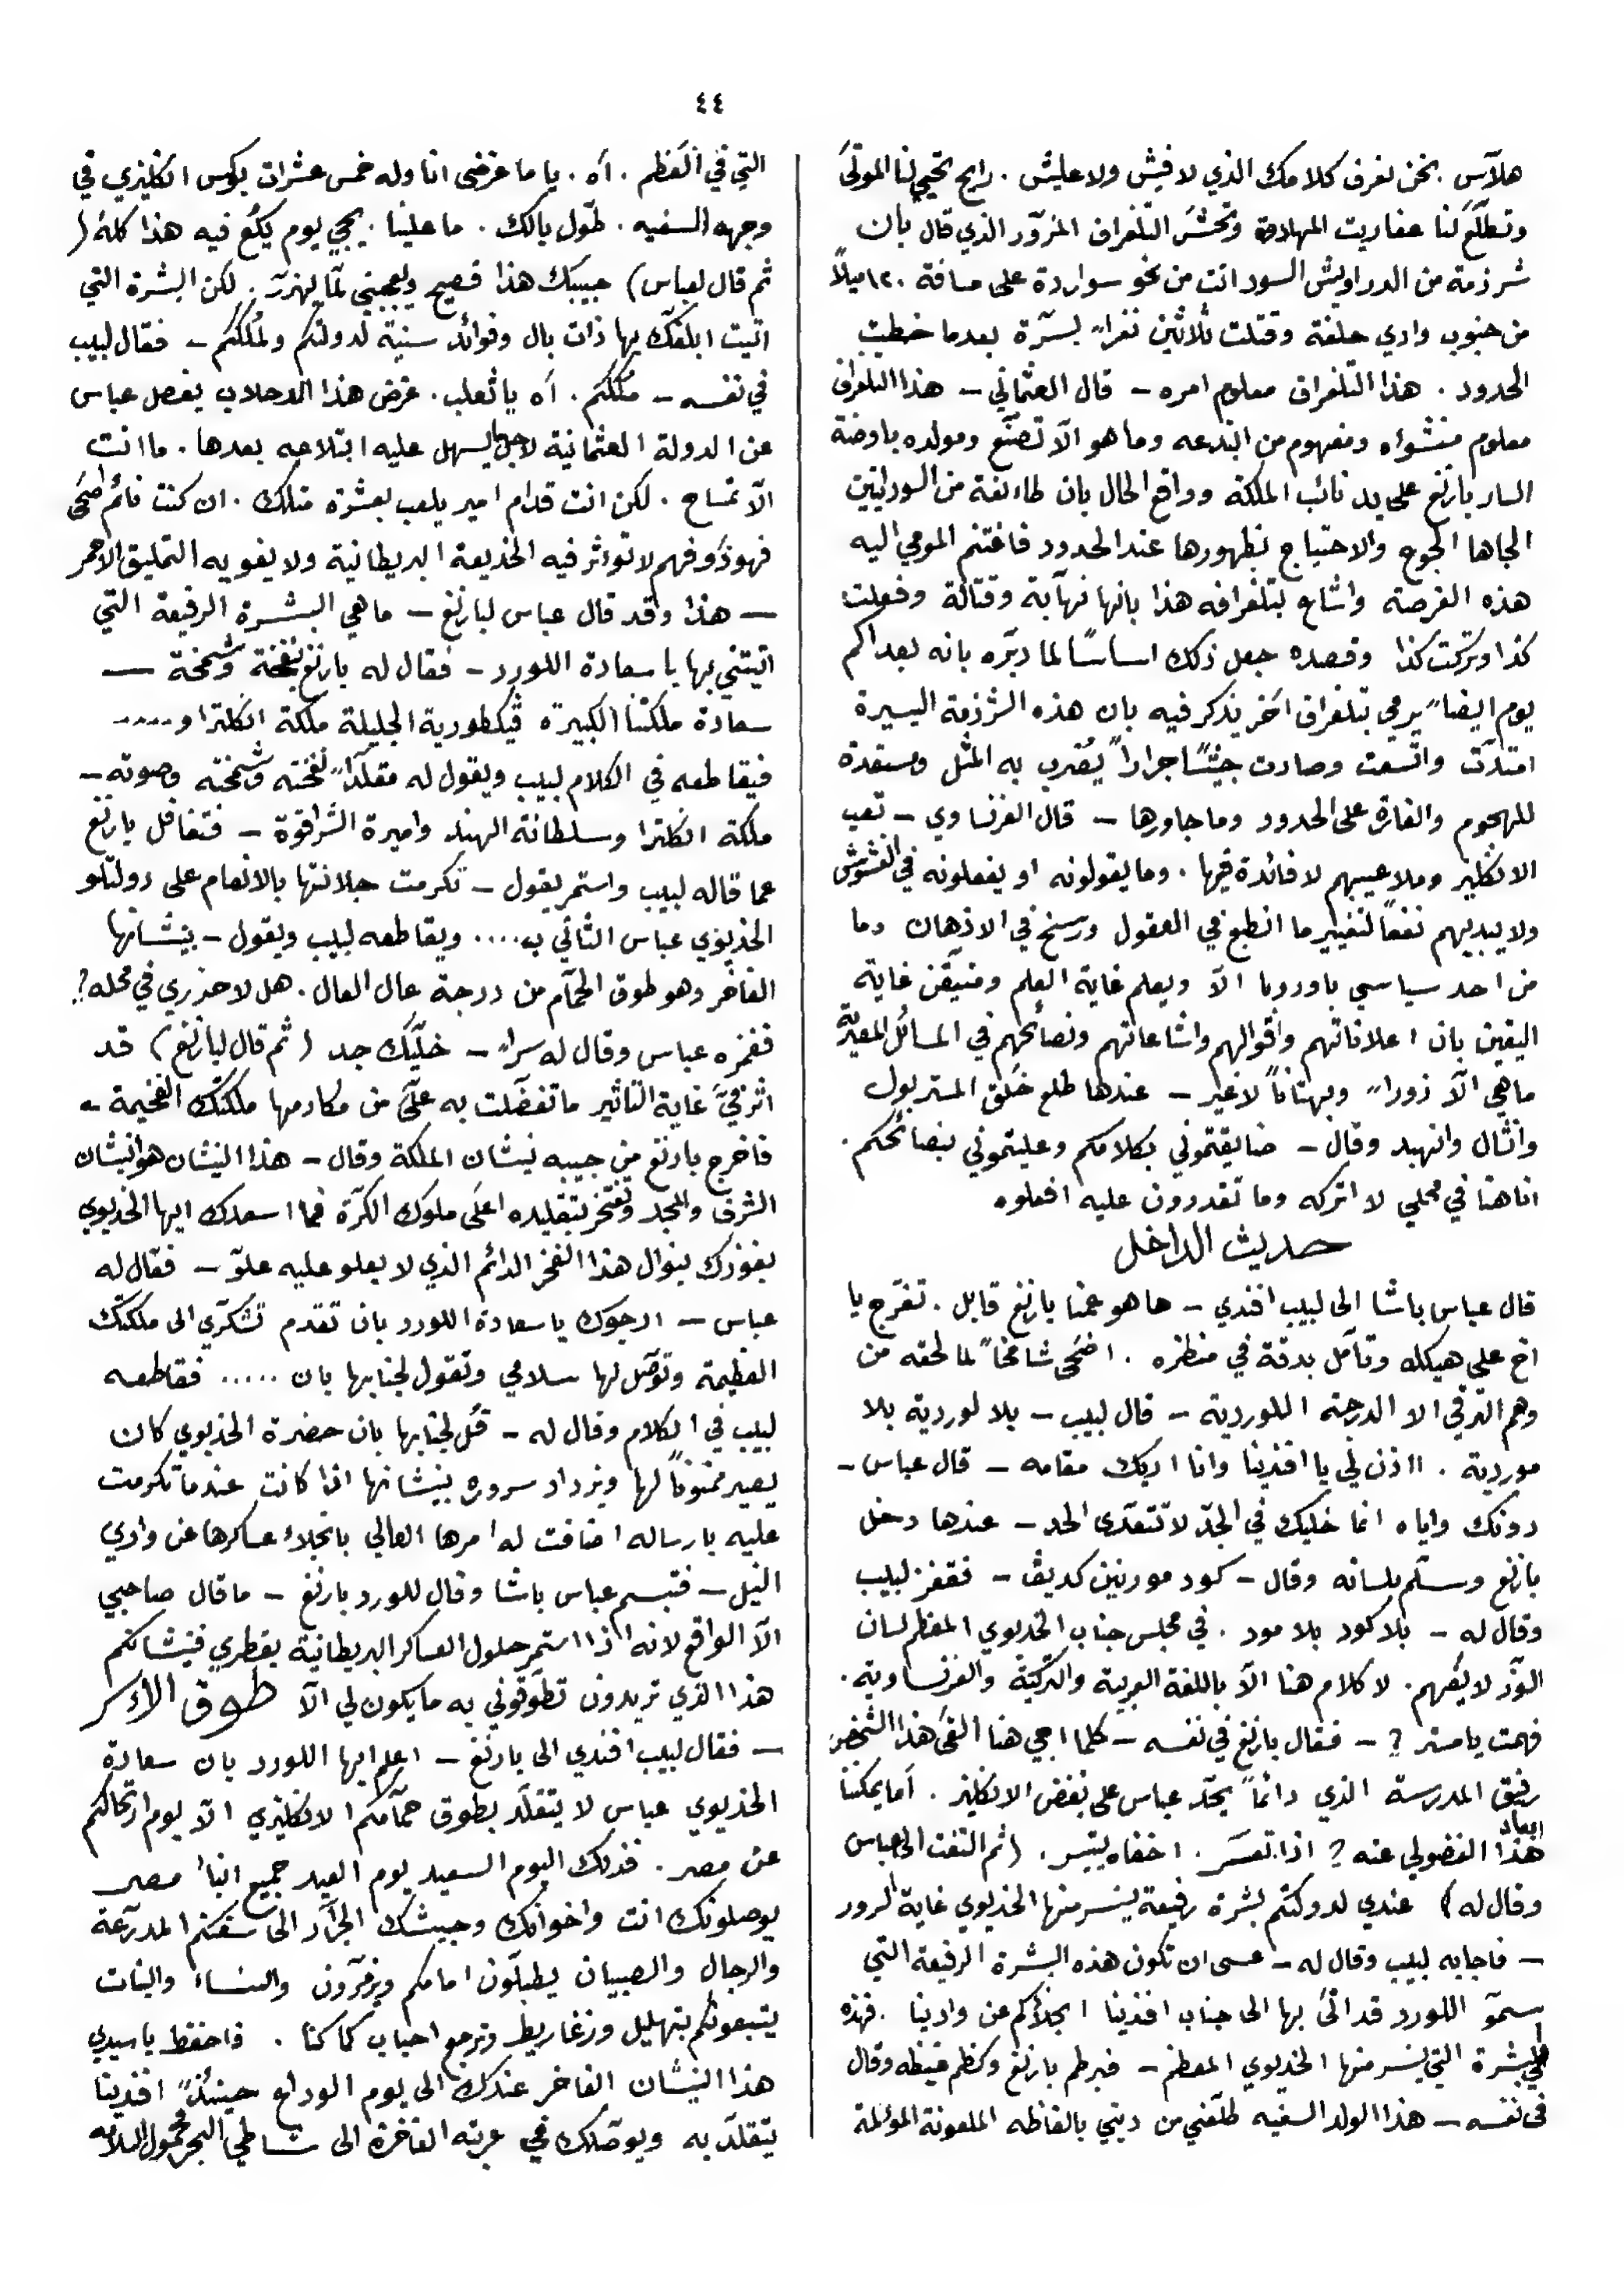 ٤٤
هلآس. نحن نعرف كلامك الذي لا فيش ولا عليش. رايح تحيي لنا الموتَى
وتطلّع لنا عفاريت المهلاوة وتحشر التلغراف المزوّر الذي قال بان
شرذمة من الدراويش السود اتت من نحو سواردة على مسافة ١٢٠ ميلاً
من جنوب وادي حلفة وقتلت ثلاثين نفراً بسرّة بعدما خطيت
الحدود. هذا التلغراف معلوم امره – قال العثماني – هذا التلغراف
معلوم منشواه ومفهوم من ابتدعه وما هو الّا تصنّع ومولده باوضة
السار بارنغ على يد نائب الملكة وواقع الحال بان طاءفة من السودانيين
الجاها الجوع والاحتياج لظهورها عند الحدود فاغتنم المومي اليه
هذه الفرصة واشاع بتلغرافه هذا بانها نهّابة وقتّالة وفعلت
كذا وتركت كذا وقصده جعل ذلك اساسًا لما دبّره بانه بعد اكم
يوم ايضاً يرمي بتلغراف آخر يذكر فيه بان هذه الشرذمة اليسيرة
امتدّت واتسعت وصارت جيشًا جراراً يُضرب به المثل ومستعدة
للهجوم والغارة على الحدود وما جاورها – قال الفرنساوي – تعب
الانكليز وملاعيبهم لا فائدة فيها. وما يقولونه او يفعلونه في الفشوش
ولا يبديهم نفعًا لتغيير ما انطبع في العقول ورسخ في الاذهان وما
من احد سياسي باوروبا الّا ويعلم غاية العلم ومتيقّن غاية
اليقين بان اعلاناتهم واقوالهم واشاعاتهم ونصائحهم في المسائل المصرية
ما هي الّا زوراً وبهتانًا لا غير – عندها طلع خلق المستر بول
وانشال وانهبد وقال – ضايقتموني بكلامكم وعليتموني بنصائحكم.
انا هنا في محلي لا اتركه وما تقدرون عليه افعلوه
حديث الداخل
قال عباس باشا الى لبيب افندي – ها هو عمنا بارنغ قابل. تفرّج يا
اخ على هيكله وتأمّل بدقة في منظره. اضحَى شامخاً لما لحقه من
وهم الترقي الا الدرجة اللوردية – قال لبيب – بلا لوردية بلا
موردية. ااذن لي يا افندينا وانا اريك مقامه – قال عباس –
دونك واياه انما خليك في الجدّ لا تتعدّى الحد – عندها دخل
بارنغ وسلّم بلسانه وقال – كود مورنين كديڤ – فقفز لبيب
وقال له – بلا كود بلا مود. في مجلس جناب الخديوي المعظم لسان
الوزّ لا يُفهم. لا كلام هنا الّا باللغة العربية والتركية والفرنساوية.
فهمت يا مستر؟ – فقال بارنغ في نفسه – كلما اجي هنا القَى هذا الشخص
رفيق المدرسة الذي دائماً يحثّ عباس على بغض الانكليز. أما يمكننا ابعاد
هذا الفضولي عنه؟ اذا تعسّر. اخفاه يتيسر. (ثم التفت الى عباس
وقال له) عندي لدولتكم بشرة رفيعة ينسر منها الخديوي غاية السرور
– فاجابه لبيب وقال له – عسى ان تكون هذه البشرة الرفيعة التي
سموّ اللورد قد اتَى بها الى جناب افندينا انجلاءكم عن وادينا. فهذه
هي البشرة التي ينسر منها الخديوي المعظم – فبرطم بارنغ وكظم غيظه وقال
في نفسه – هذا الولد السفيه طلّعني من ديني بالفاظه الملعونة المؤلمة
التي في العَظم. آه. يا ما غرضي اناوله خمس عشرات بوكس انكليزي في
وجهه السفيه. طوّل بالك. ما علينا. يجي يوم يكُع فيه هذا كلهُ (
ثم قال لعباس) حبيبك هذا فصيح ويعجبني لمّا يهزر. لكن البشرة التي
اتيت ابلغك بها ذات بال وفوائد سنية لدولتكم ولمُلككم – فقال لبيب
في نفسه – مُلككم. آه يا ثعلب. غرض هذا الدحلاب يفصل عباس
عن الدولة العثمانية لاجل ما يسهل عليه ابتلاعه بعدها. ما انت
الّا تمساح. لكن انت قدام امير يلعب بعشرة مثلك. ان كنت نائم اصحَى
فهو ذو فهم لا تؤثر فيه الخديعة البريطانية ولا يغويه التمليق الاحمر
– هذا وقد قال عباس لبارنغ – ما هي البشرة الرفيعة التي
اتيتني بها يا سعادة اللورد – فقال له بارنغ بنفخة وشمخة –
سعادة ملكتنا الكبيرة ڤيكطورية الجليلة ملكة انكلترا و....
فيقاطعه في الكلام لبيب ويقول له مقلدًا نفخته وشمخته وصوته –
ملكة انكلترا وسلطانة الهند واميرة الشراقوة – فتغافل بارنغ
عما قاله لبيب واستمر يقول – تكرمت جلالتها بالانعام على دولتلو
الخديوي عباس الثاني ب.... ويقاطعه لبيب ويقول – بنيشانها
الفاخر وهو طوق الحمام من درجة عال العال. هل لا حذري في محله؟
فغمزه عباس وقال له سراً – خلّيك جد (ثم قال لبارنغ) قد
اثر فيَّ غاية التاثير ما تفضّلت به علَيَّ من مكارمها ملكتك الفخيمة –
فاخرج بارنغ من جيبه نيشان الملكة وقال – هذا النيشان هو نيشان
الشرف والمجد وتفتخر بتقليده اعلَى ملوك الكرّة فما اسعدك ايها الخديوي
بفوزك بنوال هذا الفخر الدائم الذي لا يعلو عليه علوّ – فقال له
عباس – ارجوك يا سعادة اللورد بان تقدم تشكّري الى ملكتك
العظيمة وتوصّل لها سلامي وتقول لجنابها بان ..... فقاطعه
لبيب في الكلام وقال له – قُل لجنابها بان حضرة الخديوي كان
يصير ممنونًا لها ويزداد سروره بنيشانها اذا كانت عندما تكرمت
عليه بارساله اضافت له امرها العالي بانجلاء عساكرها عن وادي
النيل – فتبسم عباس باشا وقال للورد بارنغ – ما قال صاحبي
الّا الواقع لانه اذا استمر حلول العساكر البريطانية بقطري فنيشانكم
هذا الذي تريدون تطوّقوني به ما يكون لي الّا طوق الأسر
– فقال لبيب افندي الى بارنغ – اعلم ايها اللورد بان سعادة
الخديوي عباس لا يتقلّد بطوق حمآمكم الانكليزي الّا يوم ارتحالكم
عن مصر. فذلك اليوم السعيد يوم العيد جميع ابناء مصر
يوصلونك انت واخوانك وجيشك الجرّار الى سفنكم المدرّعة
والرجال والصبيان يطبلّون امامكم ويزمّرون والنساء والبنات
يتبعونكم بتهليل وزغاريط ونرجع احباب كما كنا. فاحفظ يا سيدي
هذا النيشان الفاخر عندك الى يوم الوداع حينئذٍ افندينا
يتقلّد به ويوصّلك في عربته الفاخرة الى شاطي البحر محمول السلامه